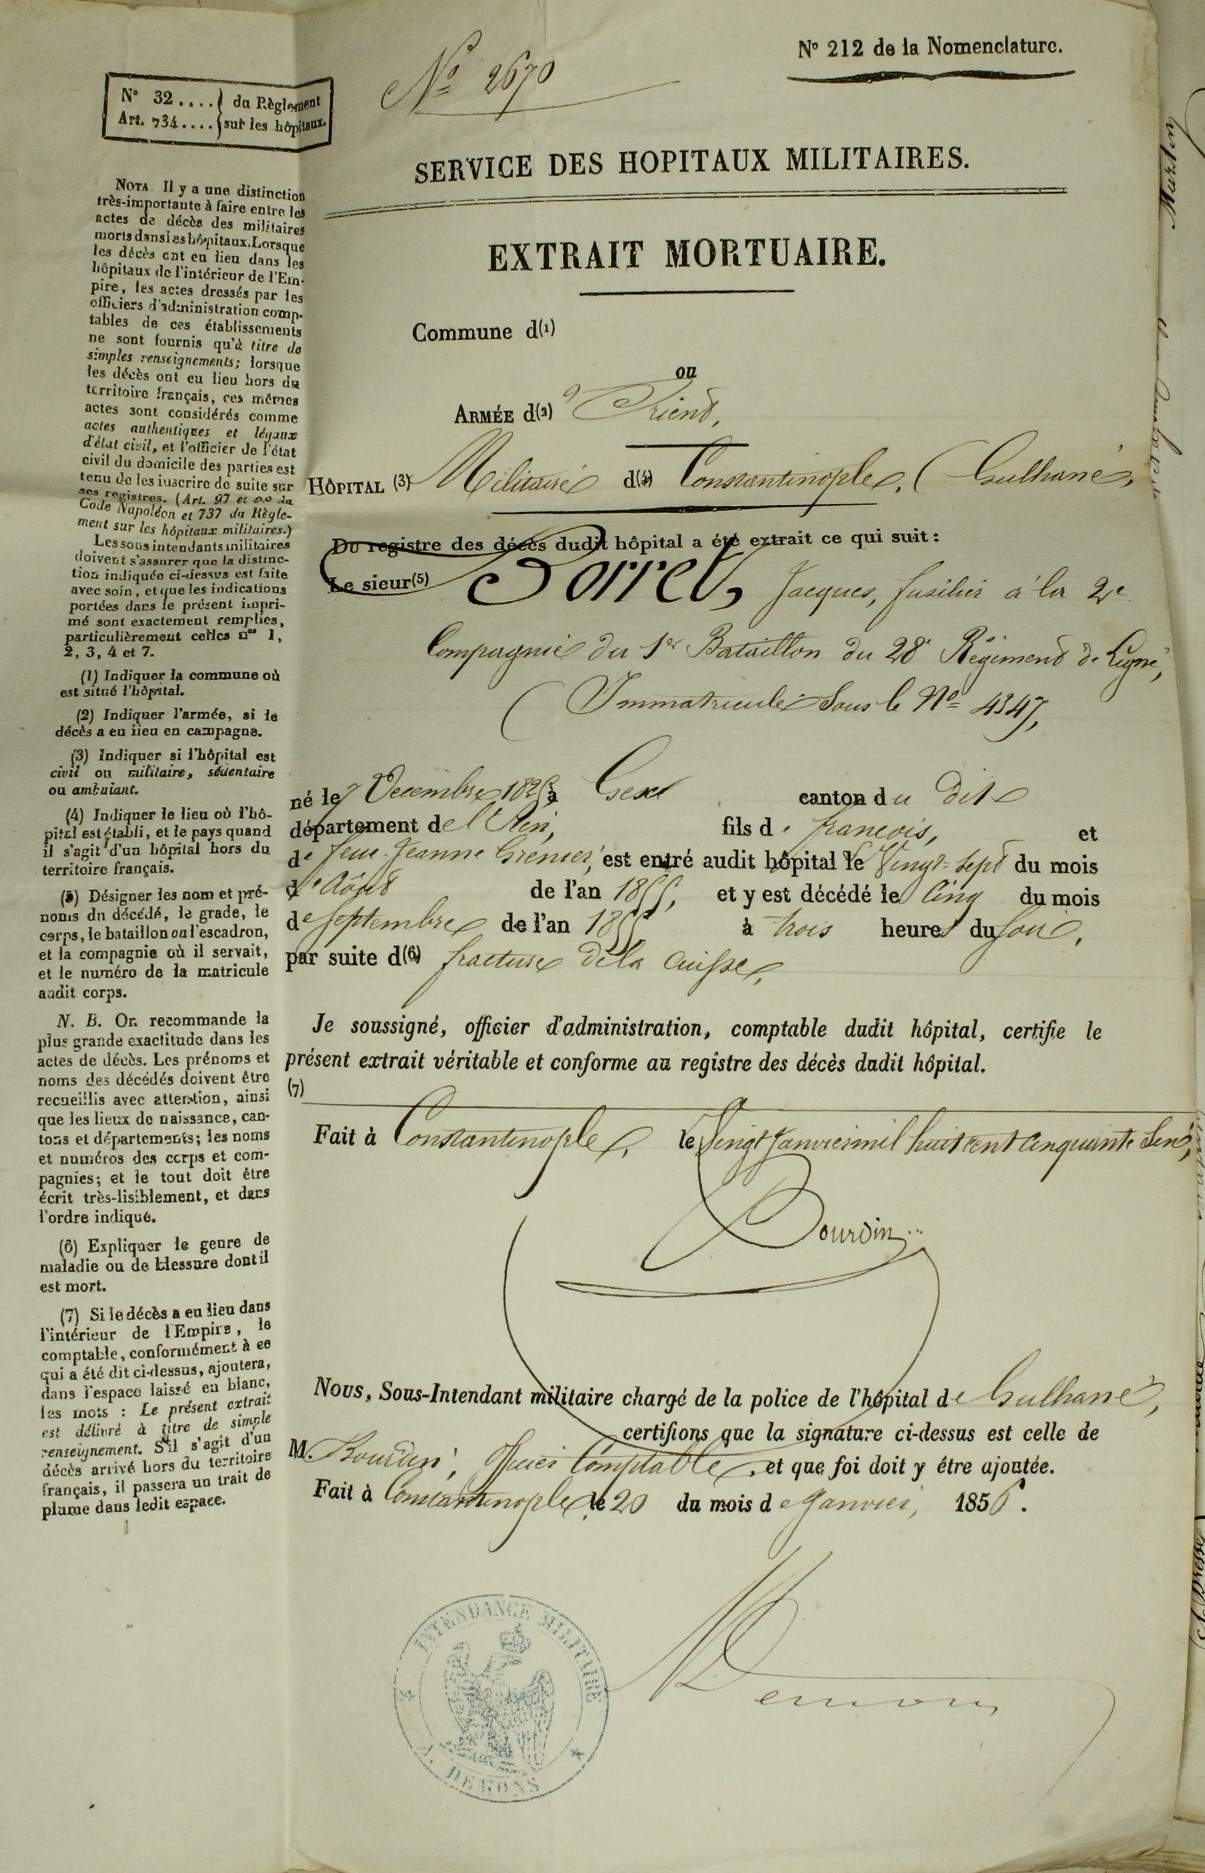 Nº 212 de la Nomenclature.
Nº 2670
Nº 32 .... } du Règlement
Art. 734 .... } sur les hôpitaux.
SERVICE DES HOPITAUX MILITAIRES.
EXTRAIT MORTUAIRE.
Commune d(1)
ou
ARMÉE d(2) 'Orient,
HÔPITAL (3) Militaire d(4) Constantinople, (Gulhané,
Du registre des décès dudit hôpital a été extrait ce qui suit :
Le sieur(5) Porret, Jacques, fusilier à la 2e
Compagnie du 1er Bataillon du 28e Régiment de Ligne,
(Immatriculé sous le Nº 4347,
né le 7 Décembre à Gex canton du dit
département de l'Ain, fils de françois, et
de feue Jeanne Grenier, est entré audit hôpital le Vingt-sept du mois
d'Aôut de l'an 1855, et y est décédé le Cinq du mois
de septembre de l'an 1855 à trois heures du soir,
par suite d(6) fracture de la cuisse,
Je soussigné, officier d'administration, comptable dudit hôpital, certifie le
présent extrait véritable et conforme au registre des décès dudit hôpital.
(7)
Fait à Constantinople, le Vingt Janvier mil huit cent cinquante Six,
Bourdin
Nous, Sous-Intendant militaire chargé de la police de l'hôpital de Gulhané,
certifions que la signature ci-dessus est celle de
M Bourdin, officier Comptable, et que foi doit y être ajoutée.
Fait à Constantinople, le 20 du mois de Janvier, 1856.
INTENDANCE MILITAIRE
DEMONS
NOTA. Il y a une distinction
très-importante à faire entre les
actes de décès des militaires
morts dans les hôpitaux. Lorsque
les décès ont eu lieu dans les
hôpitaux de l'intérieur de l'Em-
pire, les actes dressés par les
officiers d'administration comp-
tables de ces établissements
ne sont fournis qu'à titre de
simples renseignements; lorsque
les décès ont eu lieu hors du
territoire français, ces mêmes
actes sont considérés comme
actes authentiques et légaux
d'état civil, et l'officier de l'état
civil du domicile des parties est
tenu de les inscrire de suite sur
ses registres. (Art. 97 et du
Code Napoléon et 737 du Règle-
ment sur les hôpitaux militaires.)
Les sous intendants militaires
doivent s'assurer que la distinc-
tion indiquée ci-dessus est faite
avec soin, et que les indications
portées dans le présent impri-
mé sont exactement remplies,
particulièrement celles nos 1,
2, 3, 4 et 7.
(1) Indiquer la commune où
est situé l'hôpital.
(2) Indiquer l'armée, si le
décès a eu lieu en campagne.
(3) Indiquer si l'hôpital est
civil ou militaire, sédentaire
ou ambulant.
(4) Indiquer le lieu où l'hô-
pital est établi, et le pays quand
il s'agit d'un hôpital hors du
territoire français.
(5) Désigner les nom et pré-
noms du décédé, le grade, le
corps, le bataillon ou l'escadron,
et la compagnie où il servait,
et le numéro de la matricule
audit corps.
N. B. On recommande la
plus grande exactitude dans les
actes de décès. Les prénoms et
noms des décédés doivent être
recueillis avec attention, ainsi
que les lieux de naissance, can-
tons et départements; les noms
et numéros des corps et com-
pagnies; et le tout doit être
écrit très-lisiblement, et dans
l'ordre indiqué.
(6) Expliquer le genre de
maladie ou de blessure dont il
est mort.
(7) Si le décès a eu lieu dans
l'intérieur de l'Empire, le
comptable, conformément à ce
qui a été dit ci-dessus, ajoutera,
dans l'espace laissé en blanc,
les mots : Le présent extrait
est délivré à titre de simple
renseignement. S'il s'agit d'un
décès arrivé hors du territoire
français, il passera un trait de
plume dans ledit espace.